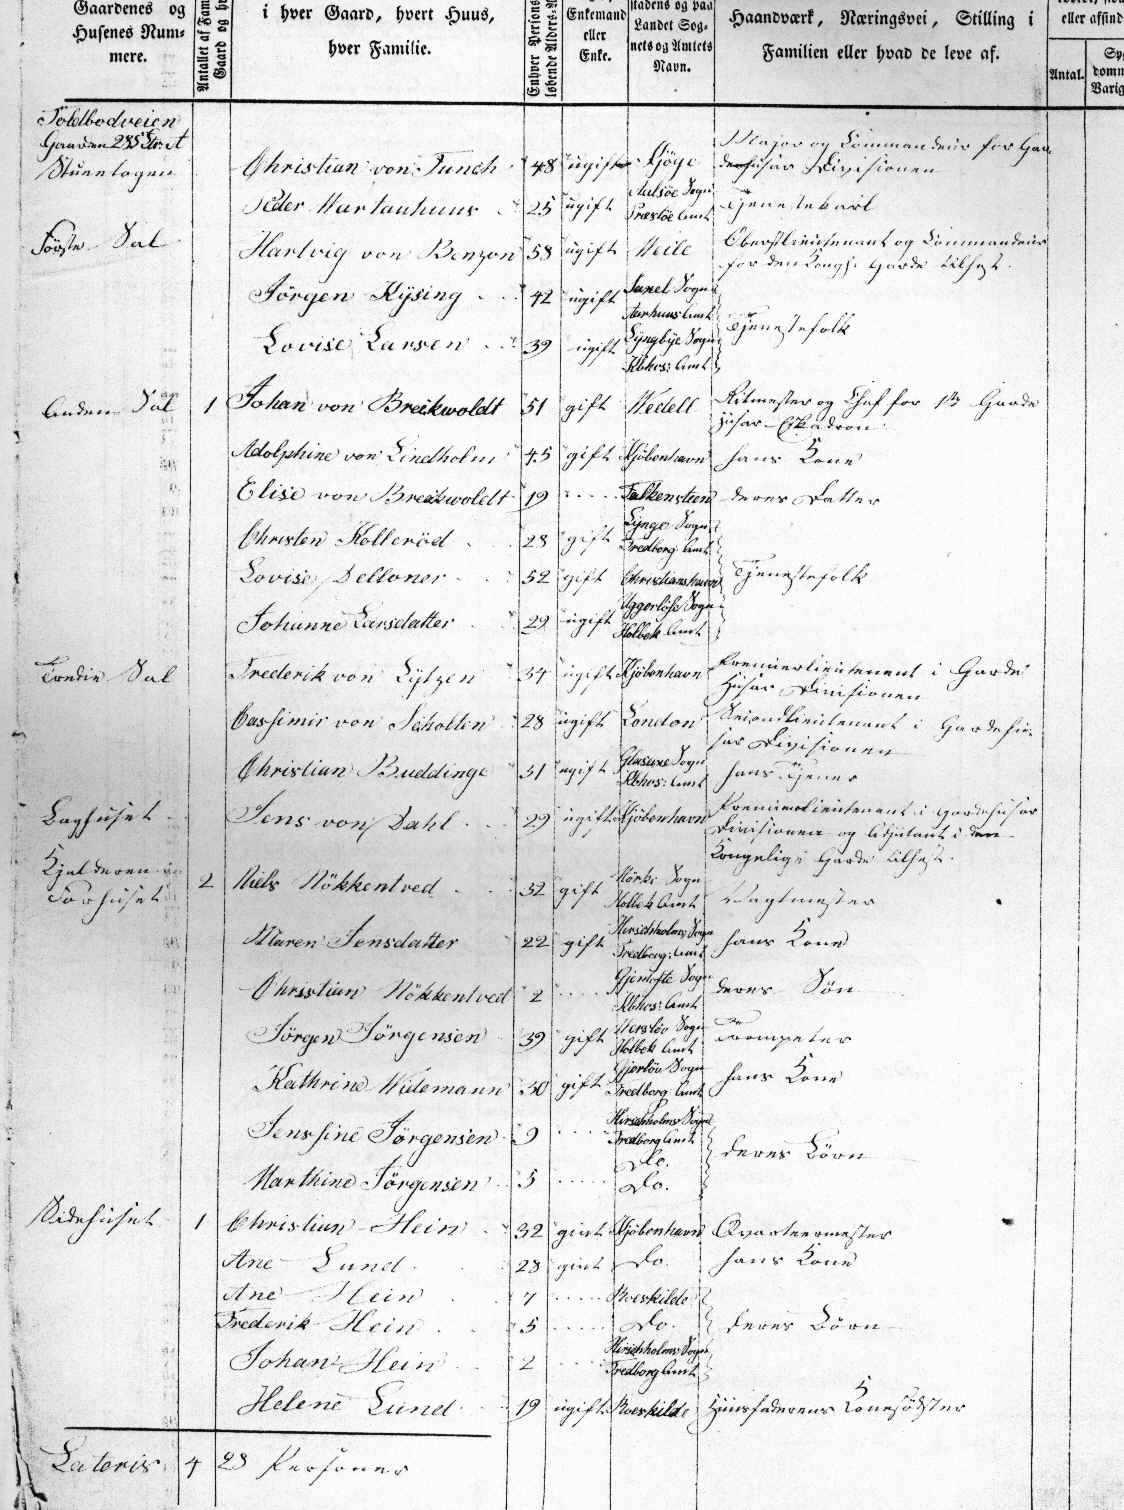 Gaardenes og
Husenes Num-
mere.
Antallet af Fam
Gaard og
i hver Gaard, hvert Huus,
hver Familie.
Enhver Persons
løbende Alders-A
Enkemand
eller
Enke.
stadens og paa
Landet Sog-
nets og Amtets
Navn.
Haandværk, Næringsvei, Stilling i
Familien eller hvad de leve af.
eller afsind
Antal.
Toldbodveien
Gaarden 285
Stuenetagen
Christian von Funch 48 ugift Gjöge Major og Commandeur for Gar
dehusar Divisionen
Peder Martanhuus 25 ugift Aulsöe Sogn
Præstöe Amt Tjenestekarl
Förste Sal Hartvig von Benzon 58 ugift Veile Oberstlieutenant og Commandeur
for den Kongl. Garde tilhest.
Jörgen Kÿsing 42 ugift Sogn
Aarhuus Amt
Lovise Larsen 39 ugift Lÿngbÿe Sogn
Kbhvs: Amt Tjenestefolk
Anden Sal 1 Johan von Breckwoldt 51 gift Wedell Ritmester og Chef for 1ste Garde
Husar-Eskadron
Adolphine von Lindholm 45 gift Kjöbenhavn hans Kone
Elise von Breckwoldt 19 Falkensteen deres Datter
Christen Kolleröd 28 gift Lÿnge Sogn
Fredborg Amt
Lovise Delloner 52 gift Christianshavn Tjenestefolk
Johanne Larsdatter 29 ugift Uggerlöse Sogn
Holbek Amt
Tredie Sal Frederik von Lÿtzen 34 ugift Kjöbenhavn Premierlieutenant i Garde
Husar Divisionen
Cassimir von Scholten 28 ugift London Secondlieutenant i Gardehu-
sar Divisionen
Christian Buddinge 31 ugift Gladsaxe Sogn
Kbhvs: Amt hans Tjener
Baghuset Jens von Dahl 29 ugift Kjöbenhavn Premierlieutenant i Gardehusar
Divisionen og Adjutant i den
Kongelige Garde tilhest.
Kjelderen i
Forhuset 2 Niels Nökkentved 32 gift Mörke Sogn
Holbek Amt Vagtmester
Maren Jensdatter 22 gift Hirschholms Sogn
Fredborg: Amt hans Kone
Christian Nökkentved 2 Gjentofte Sogn
Kbhvs: Amt deres Sön
Jörgen Jörgensen 39 gift Merslöv Sogn
Holbek Amt Trompeter
Kathrine Widemann 30 gift Gjerlöv Sogn
Fredborg Amt hans Kone
Jenssine Jörgensen 9 Hirschholms Sogn
Fredborg Amt
Do. deres Börn
Marthine Jörgensen 5 Do.
Sidehuset 1 Christian Hein 32 givt Kjöbenhavn Qvarteermester
Ane Lund 28 givt Do. hans Kone
Ane Hein 7 Roeskilde
Frederik Hein 5 Do. deres Börn
Johan Hein 2 Hirschholms Sogn
Fredborg Amt
Helene Lund 19 ugift Roeskilde Huusfaderens Konesödster
Lateris 4 23 Personer